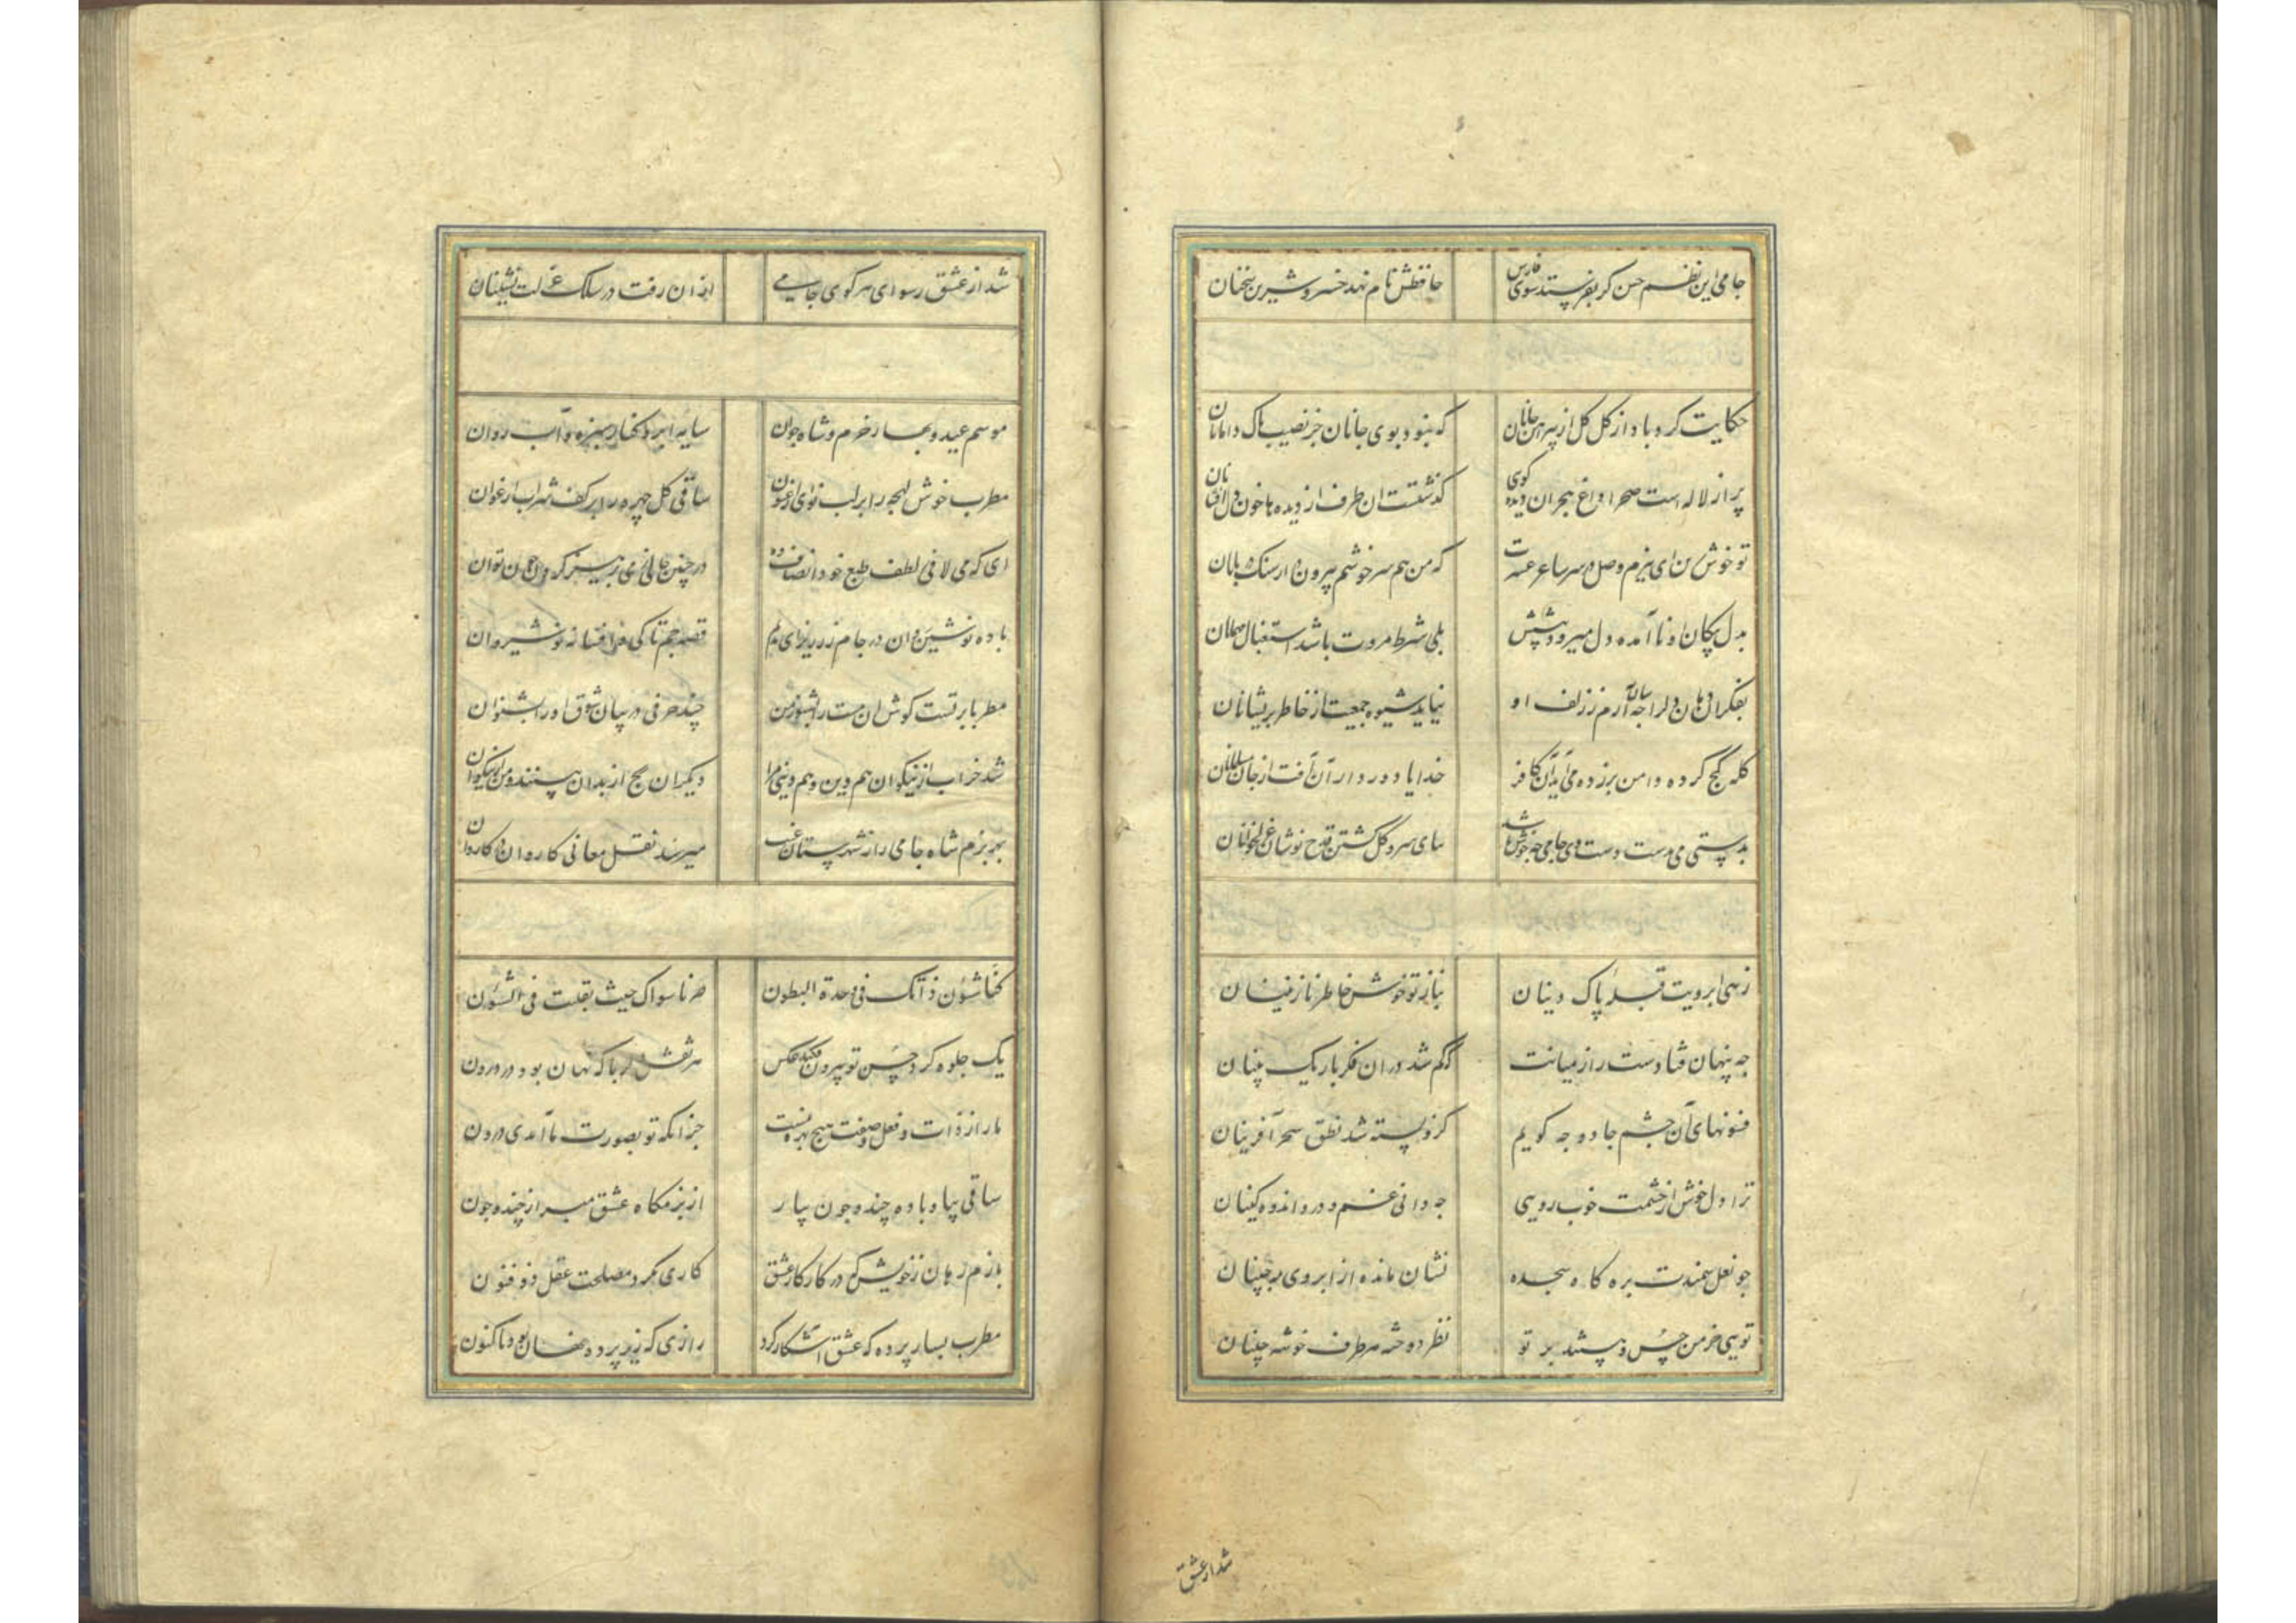 جامی این نظم حسن کر بفرستد سوی فارس حافظش نام نهد خسرو شیرین سخنان
حکایت کرد باد از کل کل از پیراهن جانان که نبود بوی جانان جز نصیب پاک دامانان
پر از لاله است صحرا داغ هجران دیده کوی کذشتست ان طرف از دیده ها خون دل
تو خوش زن ای ببزم وصل سر ساغر عشرت که من هم سر خوشم بیرون در از سنک
بدل پیکان او نا آمده دل میرود پیشش بلی شرط مروت باشد استقبال مهمانان
بفکر ان دهان دلرا جه سان آرم ز زلف او نیاید شیوه جمعیت از خاطر پریشانان
کله کج کرده دامن برزده می آید آن کافر خدایا دور دار آن آفت از جان مسلمانان
بد پستی می بدست دوست دی جامی جه خوش باشد بپای سرو کل کشتن قدح نوشان غزلخوانان
زهی ابرویت قبله پاک دینان نیاز تو خوش خاطر نازنینان
جه پنهان فتادست راز میانت که کم شد در ان فکر باریک بینان
فسونهای آن جشم جادو جه کویم کزو بسته شد نطق سحر آفرینان
ترا دل خوش از حشمت خوب رویی جه دانی غم و درد اندوه کینان
جو نعل سمندت بره کاه سجده نشان مانده از ابروی مه جبینان
تویی خرمن حسن و پیشند بر تو نظر دوخته هر طرف خوشه چینان
شد از عشق
شد از عشق رسوای هر کوی جامی از ان رفت در سلک عزلت نشینان
موسم عید و بهار خرم و شاه جوان سایه ابر و کنار سبزه و آب روان
مطرب خوش لهجه را بر لب نوای ارغنون ساقی کل چهره را بر کف شراب ارغوان
ای که می لافی ز لطف طبع خود انصاف ده در چنین حالی ز می پرهیز کردن چون توان
باده نوشین روان در جام زر ریز ای ندیم قصه جم تا کی و افسانه نوشیروان
مطربا بر تست کوش ان مست را بهر من چند حرفی در بیان شوق او را بشنوان
شد خراب از نیکوان هم دین و هم دنیی مرا دیکران رنج از بدان بینند و من از نیکوان
بهر بزم شاه جامی را ز شهرستان غیب میرسد نقل معانی کاروان در کاروان
کنا شؤن ذاتک فی وحدة البطون صرنا سواک حیث تقلبت فی الشؤن
یک جلوه کرد حسن تو بیرون فکند عکس هر نقش دلربا که نهان بود در درون
ما را ز ذات و فعل و صفت هیچ بهره نیست جز انکه تو بصورت ما آمدی درون
ساقی بیا و باده چند و چون بیار از بزمکاه عشق مبرا ز چند و جون
بازم رهان ز خویش که در کار کار عشق کاری نکرد مصلحت عقل ذو فنون
مطرب بساز پرده که عشق آشکار کرد رازی که زیر پرده نهان بود تا کنون